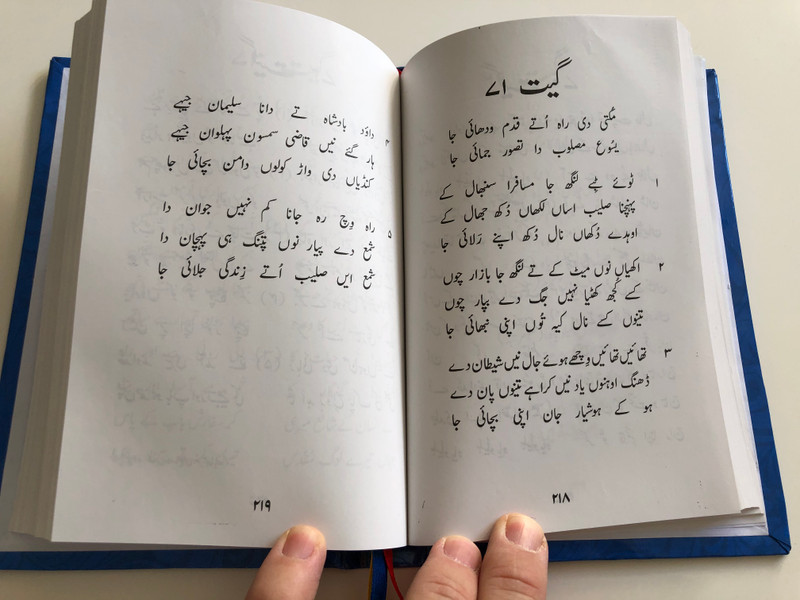 گیت ۷۱
مُکتی دی راہ اُتے قدم ودھائی جا
یسُوع مصلوب دا تصور جمائی جا
۱ ٹوئے ٹِبے لنگھ جا مسافرا سنبھال کے
پہنچنا صلیب اساں لکھاں دُکھ جھال کے
اوہدے دُکھاں نال دُکھ اپنے رَلائی جا
۲ اکھیاں نوں میٹ کے تے لنگھ جا بازار چوں
کے کُجھ کھٹیا نہیں جگ دے بپار چوں
تینوں کے نال کیہ تُوں اپنی نبھائی جا
۳ تھائیں تھائیں وِچھے ہوئے جال نیں شیطان دے
ڈھنگ اوہنوں یاد نیں کراہے تینوں پان دے
ہو کے ہوشیار جان اپنی بچائی جا
۲۱۸
۴ داؤد بادشاہ تے دانا سلیمان جیہے
ہار گئے نیں قاضی سمسون پہلوان جیہے
کنڈیاں دی واڑ کولوں دامن بچائی جا
۵ راہ وِچ رہ جانا کم نہیں جوان دا
شمع دے پیار نوں پتنگ ہی پہچان دا
شمع ایں صلیب اُتے زِندگی جلائی جا
۲۱۹